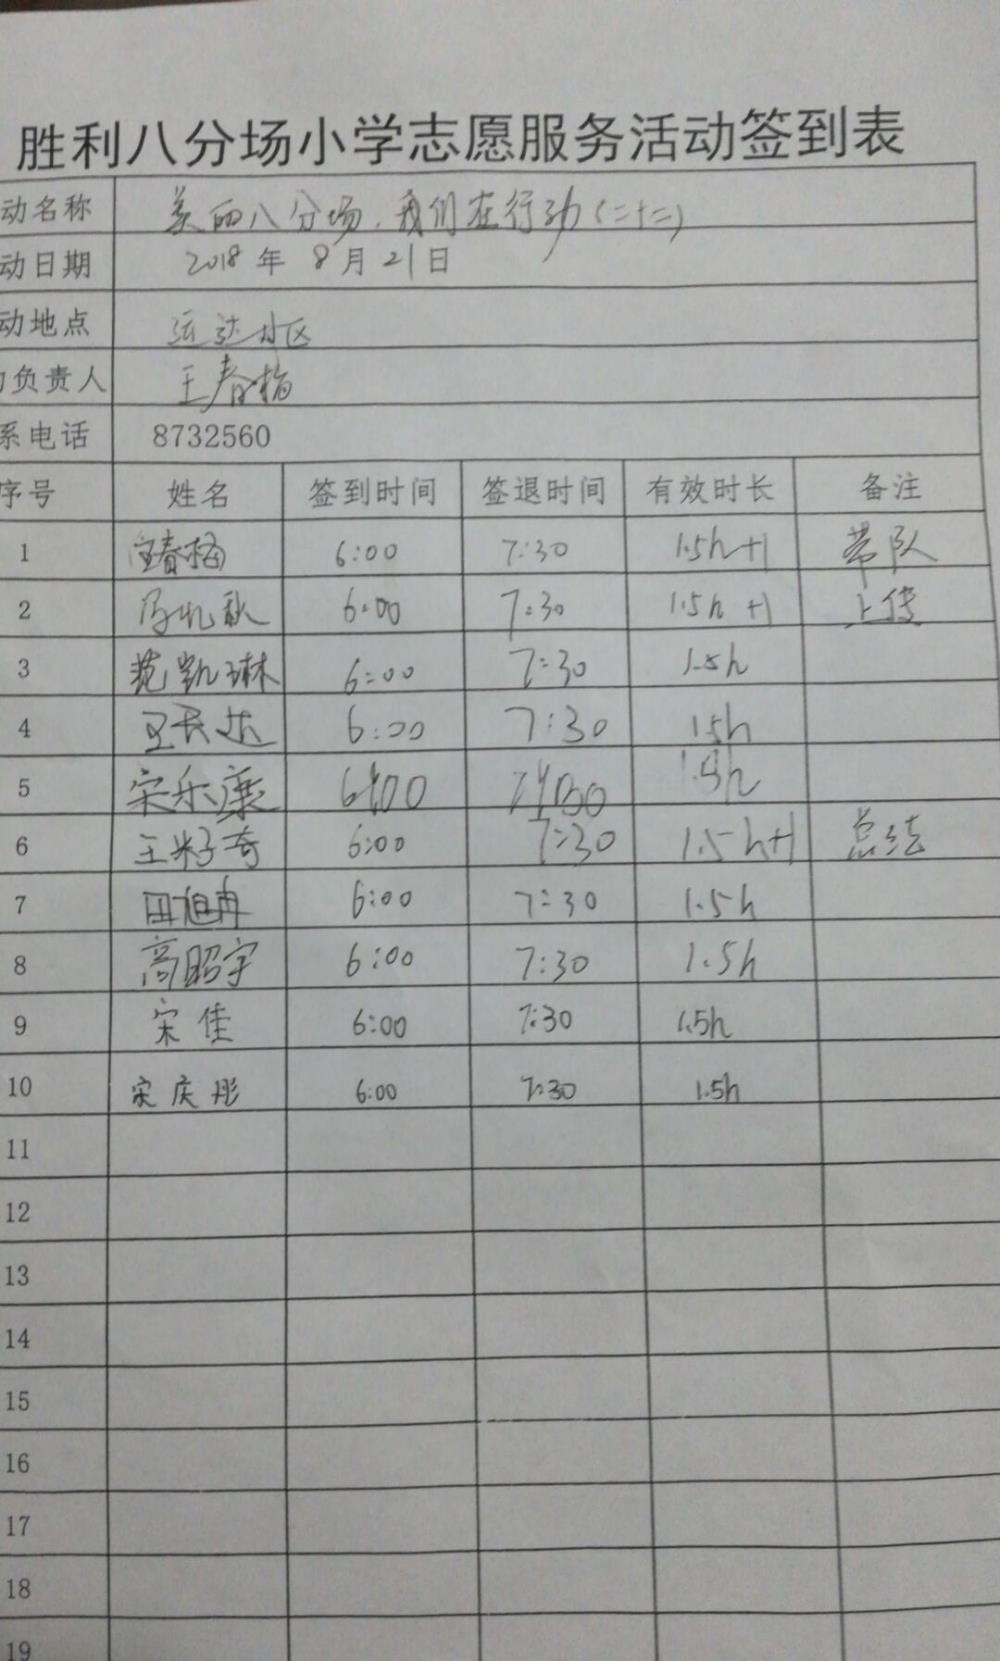 胜利八分场小学志愿服务活动签到表
动名称 美丽八分场,我们在行动(二十二)
动日期 2018年8月21日
动地点 运达小区
负责人 王春梅
系电话 8732560
序号 姓名 签到时间 签退时间 有效时长 备注
1 王春梅 6:00 7:30 1.5h+1 带队
2 6:00 7:30 1.5h+1 上传
3 范凯琳 6:00 7:30 1.5h
4 6:00 7:30 1.5h
5 宋乐康 6:00 7:30 1.5h
6 王籽奇 6:00 7:30 1.5h+1 总结
7 田旭冉 6:00 7:30 1.5h
8 高昭宇 6:00 7:30 1.5h
9 宋佳 6:00 7:30 1.5h
10 宋庆彤 6:00 7:30 1.5h
11
12
13
14
15
16
17
18
19